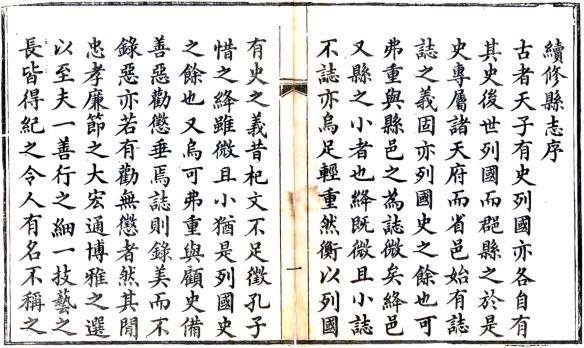 續修縣志序
古者天子有史列國亦各自有
其史後世列國而郡縣之於是
史專屬諸天府而省邑始有誌
誌之義固亦列國史之餘也可
弗重與縣邑之為誌微矣絳邑
又縣之小者也絳既微且小誌
不誌亦烏足輕重然衡以列國
有史之義昔杞文不足徵孔子
惜之絳雖微且小猶是列國史
之餘也又烏可弗重與顧史備
善惡勸懲垂焉誌則錄美而不
錄惡亦若有勸無懲者然其閒
忠孝廉節之大宏通博雅之選
以至夫一善行之細一技藝之
長皆得紀之令人有名不稱之
一